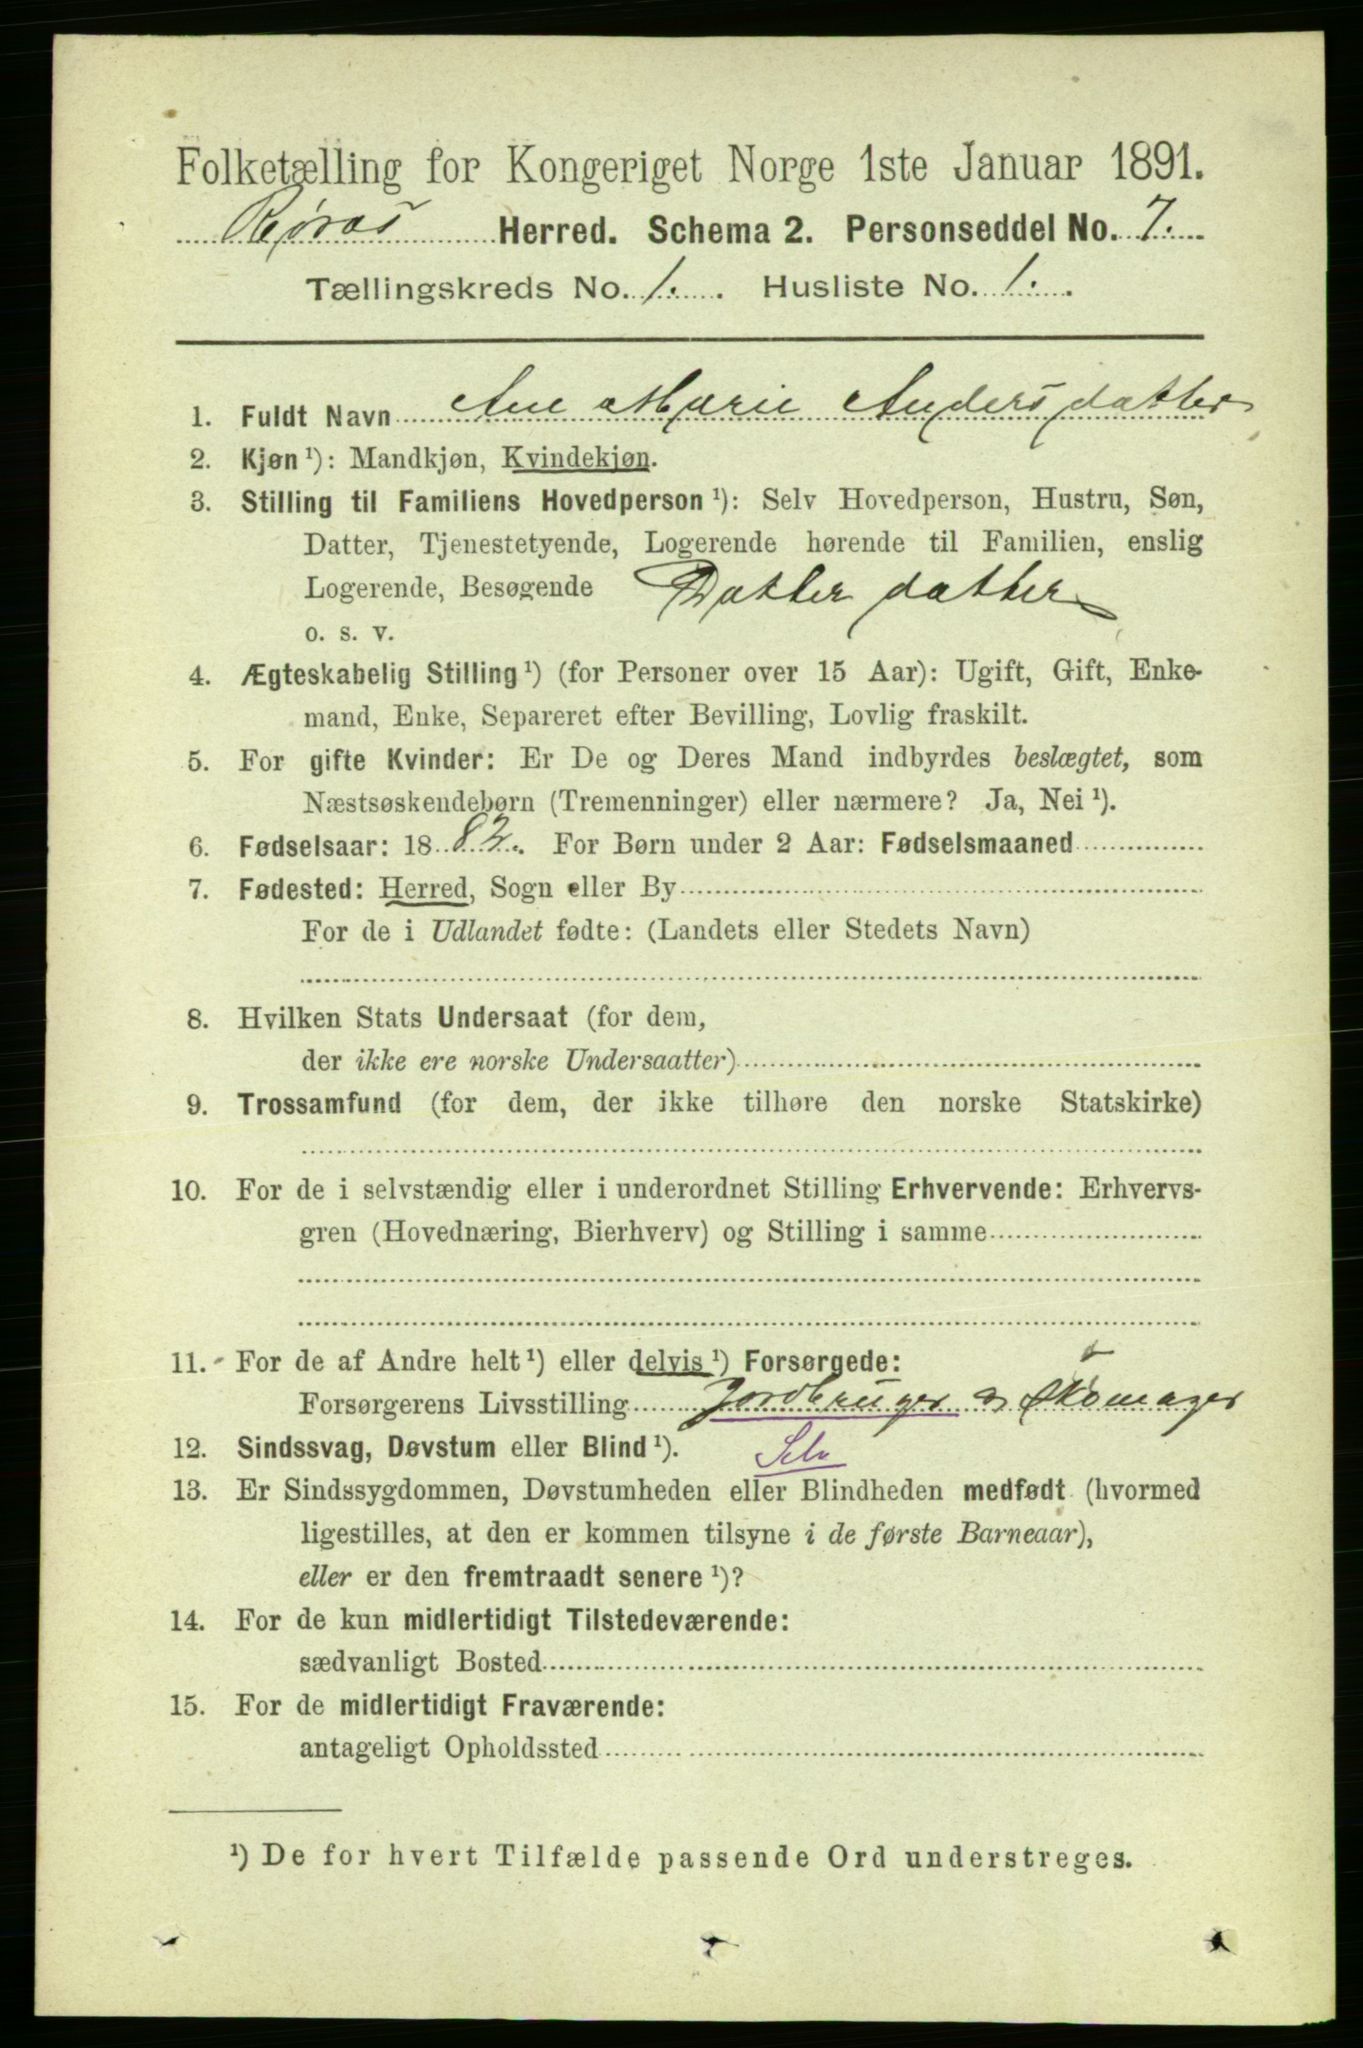 Folketælling for Kongeriget Norge 1ste Januar 1891.
Røros Herred. Schema 2. Personseddel No. 7.
Tællingskreds No. 1. Husliste No. 1.
1. Fuldt Navn Ane Marie Andersdatter
2. Kjøn ¹): Mandkjøn, Kvindekjøn.
3. Stilling til Familiens Hovedperson ¹): Selv Hovedperson, Hustru, Søn,
Datter, Tjenestetyende, Logerende hørende til Familien, enslig
Logerende, Besøgende Datter datter
o. s. v.
4. Ægteskabelig Stilling ¹) (for Personer over 15 Aar): Ugift, Gift, Enke-
mand, Enke, Separeret efter Bevilling, Lovlig fraskilt.
5. For gifte Kvinder: Er De og Deres Mand indbyrdes beslægtet, som
Næstsøskendebørn (Tremenninger) eller nærmere? Ja, Nei ¹).
6. Fødselsaar: 1882. For Børn under 2 Aar: Fødselsmaaned
7. Fødested: Herred, Sogn eller By
For de i Udlandet fødte: (Landets eller Stedets Navn)
8. Hvilken Stats Undersaat (for dem,
der ikke ere norske Undersaatter)
9. Trossamfund (for dem, der ikke tilhøre den norske Statskirke)
10. For de i selvstændig eller i underordnet Stilling Erhvervende: Erhvervs-
gren (Hovednæring, Bierhverv) og Stilling i samme
11. For de af Andre helt ¹) eller delvis ¹) Forsørgede:
Forsørgerens Livsstilling Jordbruger & Skomager
12. Sindssvag, Døvstum eller Blind ¹). Selv
13. Er Sindssygdommen, Døvstumheden eller Blindheden medfødt (hvormed
ligestilles, at den er kommen tilsyne i de første Barneaar),
eller er den fremtraadt senere ¹)?
14. For de kun midlertidigt Tilstedeværende:
sædvanligt Bosted
15. For de midlertidigt Fraværende:
antageligt Opholdssted
¹) De for hvert Tilfælde passende Ord understreges.